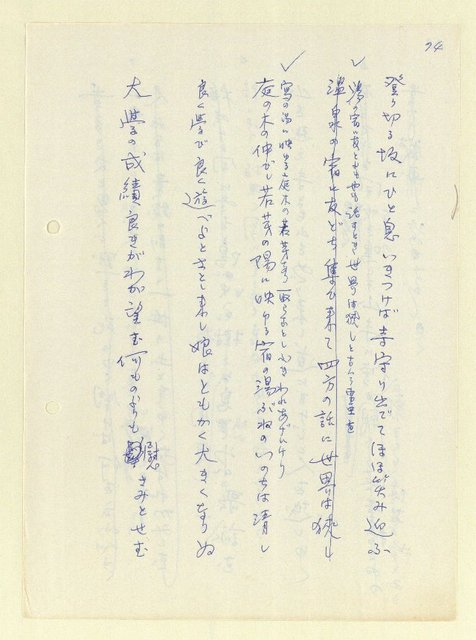 74
登り切る坂にひと息いきつけば寺守り出でてほほ笑み迎ふ
湯の宿に友どもや
世界は狭しと
温泉の宿に友どち集ひ来て四方の話に世界は狭し
窓の湯に映ゆる庭木の若芽
庭の木の伸びし若芽の陽に映ゆる宿の湯ぶねのいのちは清し
良く学び良く遊べよとさとし来し娘はともかく大きくなりぬ
大学の成績良きがわが望む何ものよりも慰さみとせむ